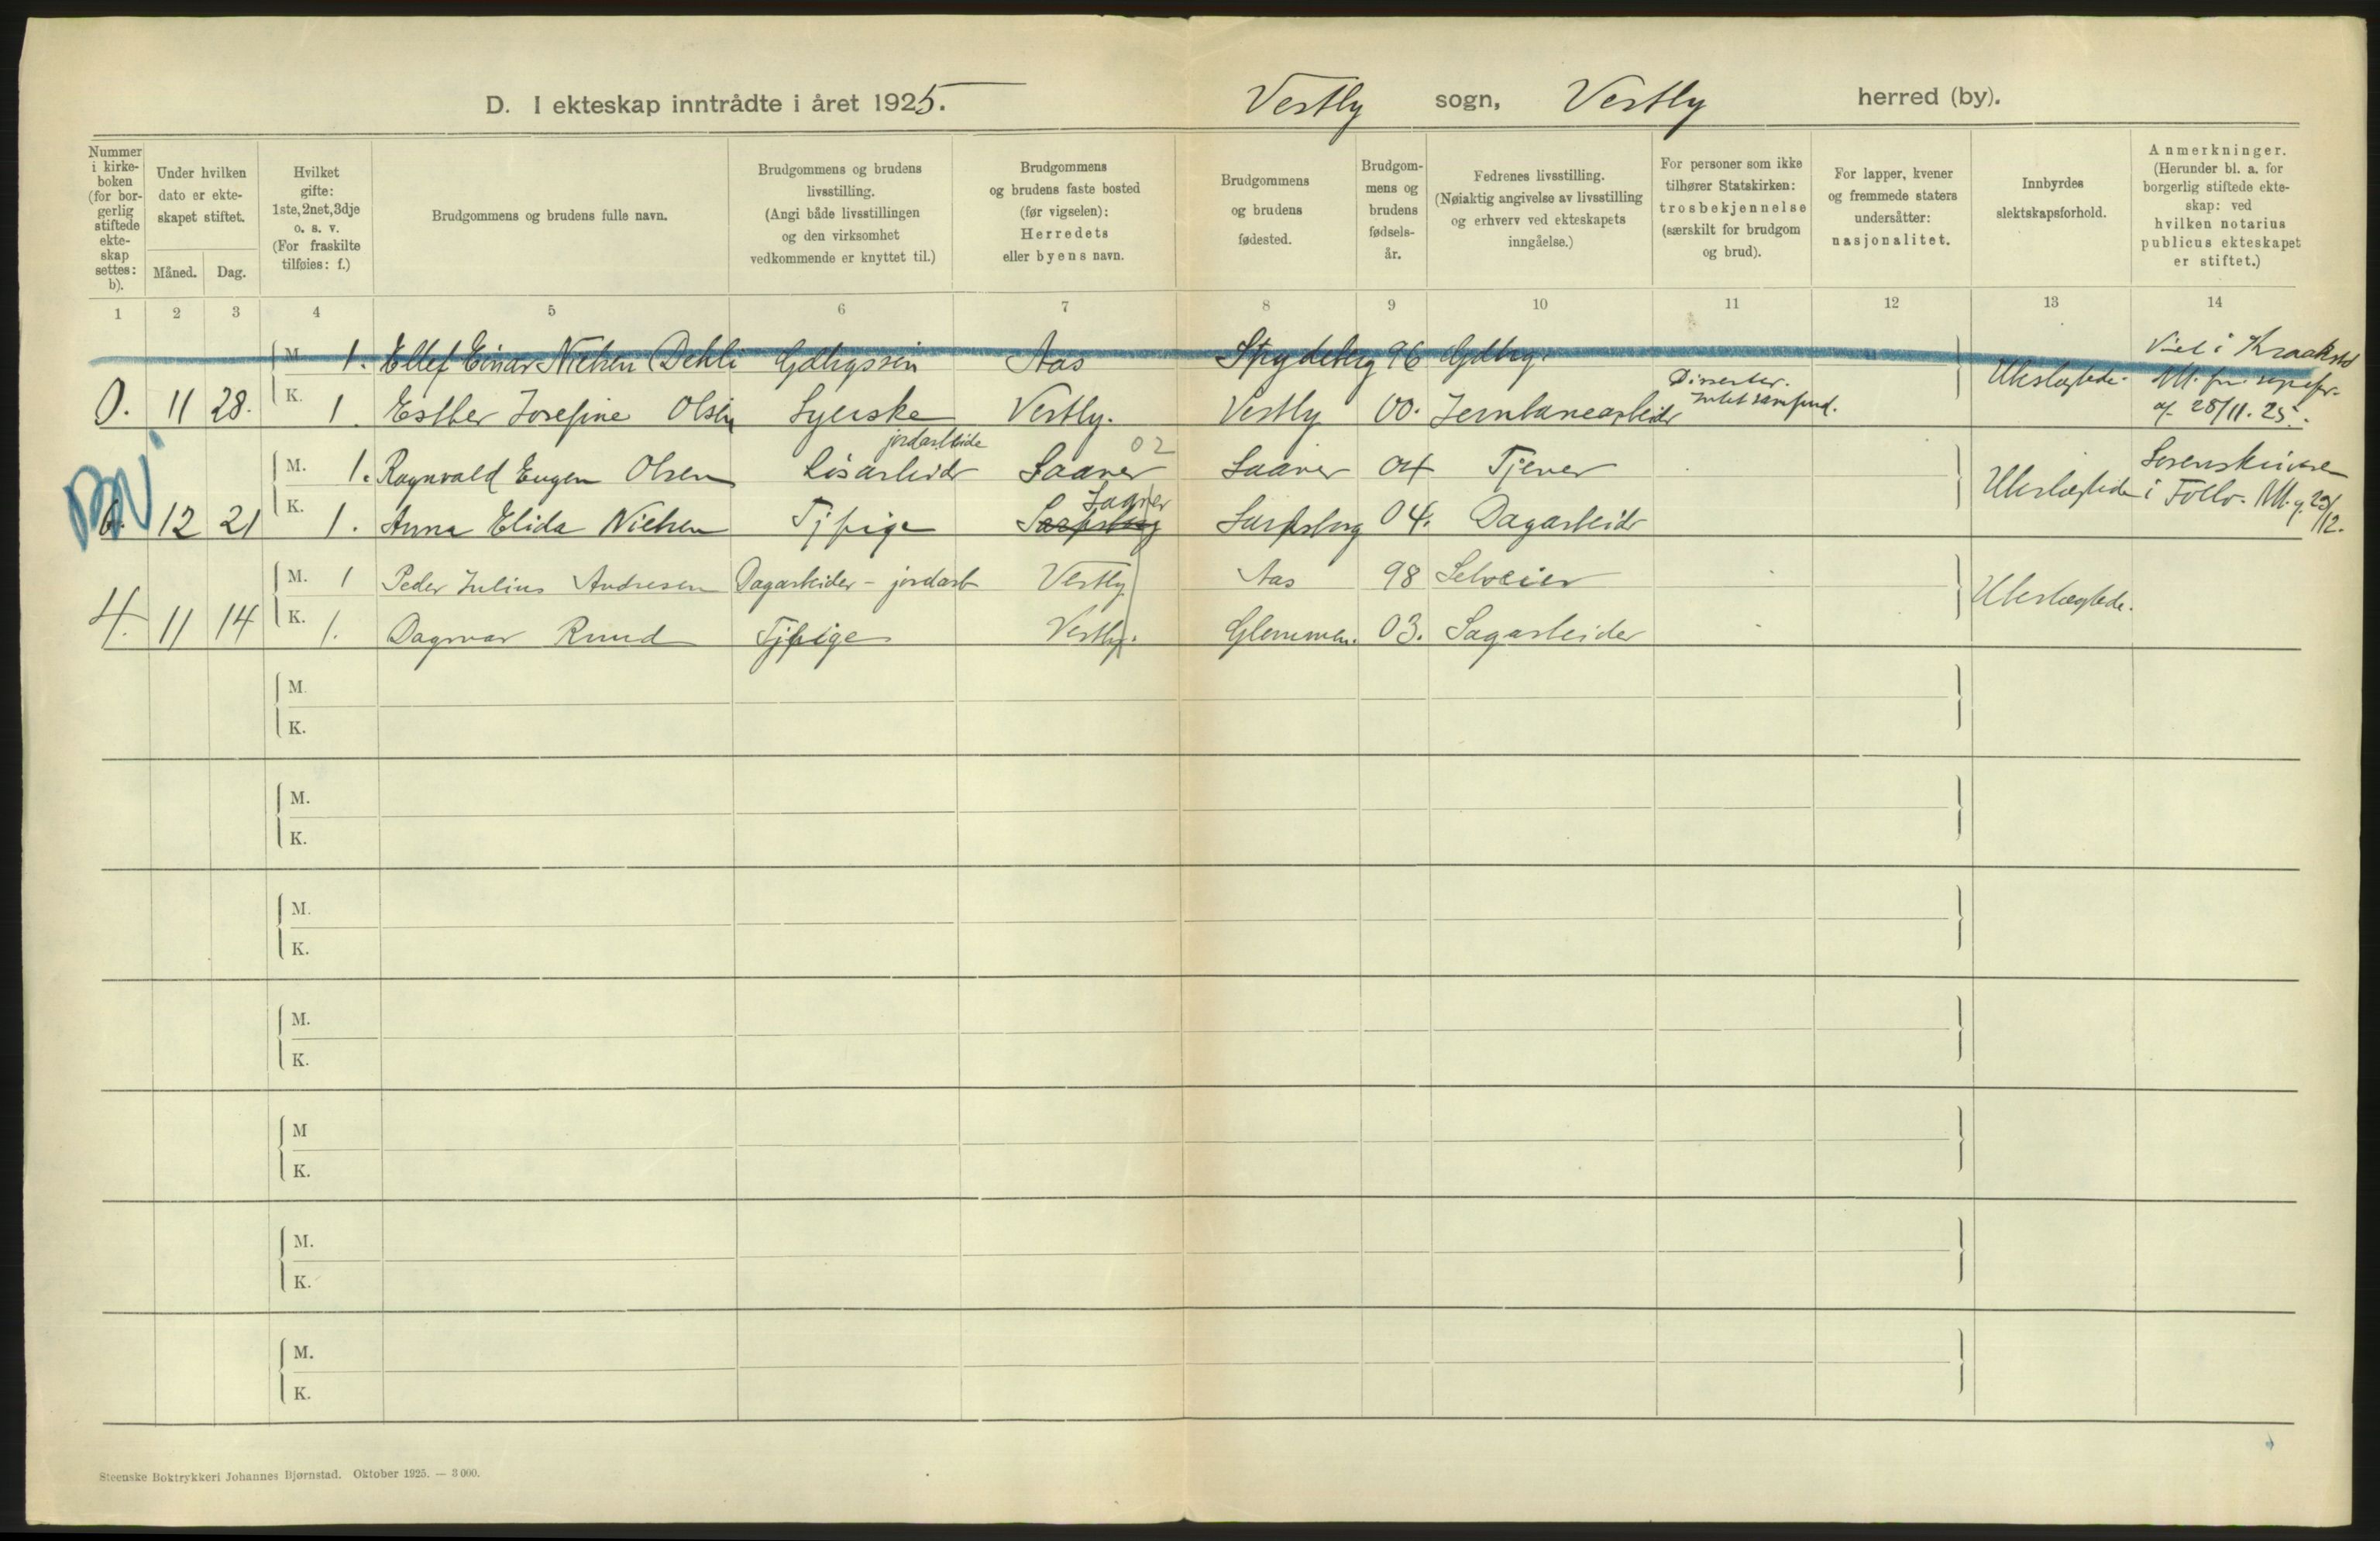 D. I ekteskap inntrådte i året 1925.
Vestby sogn, Vestby herred (by).
Nummer i kirke-boken (for bor-gerlig stiftede ekte-skap settes: b).
Under hvilken dato er ekte-skapet stiftet.
Måned. Dag.
Hvilket gifte: 1ste, 2net, 3dje o. s. v. (For fraskilte tilføies: f.)
Brudgommens og brudens fulle navn.
Brudgommens og brudens livsstilling. (Angi både livsstillingen og den virksomhet vedkommende er knyttet til.)
Brudgommens og brudens faste bosted (før vigselen): Herredets eller byens navn.
Brudgommens og brudens fødested.
Brudgom-mens og brudens fødsels-år.
Fedrenes livsstilling. (Nøiaktig angivelse av livsstilling og erhverv ved ekteskapets inngåelse.)
For personer som ikke tilhører Statskirken: trosbekjennelse (særskilt for brudgom og brud).
For lapper, kvener og fremmede staters undersåtter: nasjonalitet.
Innbyrdes slektskapsforhold.
Anmerkninger. (Herunder bl. a. for borgerlig stiftede ekte-skap: ved hvilken notarius publicus ekteskapet er stiftet.)
1 2 3 4 5 6 7 8 9 10 11 12 13 14
M. 1. Ellef Einar Nielsen Dehli Gdbrgssøn Aas Spydeberg 96 Gdbrg. Viet i Kraakstad
0. 11 28. K. 1. Esther Josefine Olsen Syerske Vestby. Vestby 00. Jernbanearbeider Dissenter. Intet samfund. Ubeslægtede. 28/11. 25.
M. 1. Ragnvald Eugen Olsen Løsarbeider jordarbeide Saaner 02 Saaner 04 Tjener Sorenskriveren
6. 12 21 K. 1. Anna Elida Nielsen Tjpige Sarpsborg Saaner Sarpsborg 04. Dagarbeider Ubeslægtede i Follo. 23/12.
M. 1 Peder Julius Andresen Dagarbeider - jordarb Vestby Aas 98 Selveier
4. 11 14 K. 1. Dagmar Ruud Tjpige Vestby. Glemmen. 03. Sagarbeider Ubeslægtede.
M.
K.
M.
K.
M.
K.
M.
K.
M
K.
M.
K.
M.
K.
Steenske Boktrykkeri Johannes Bjørnstad. Oktober 1925. — 3 000.